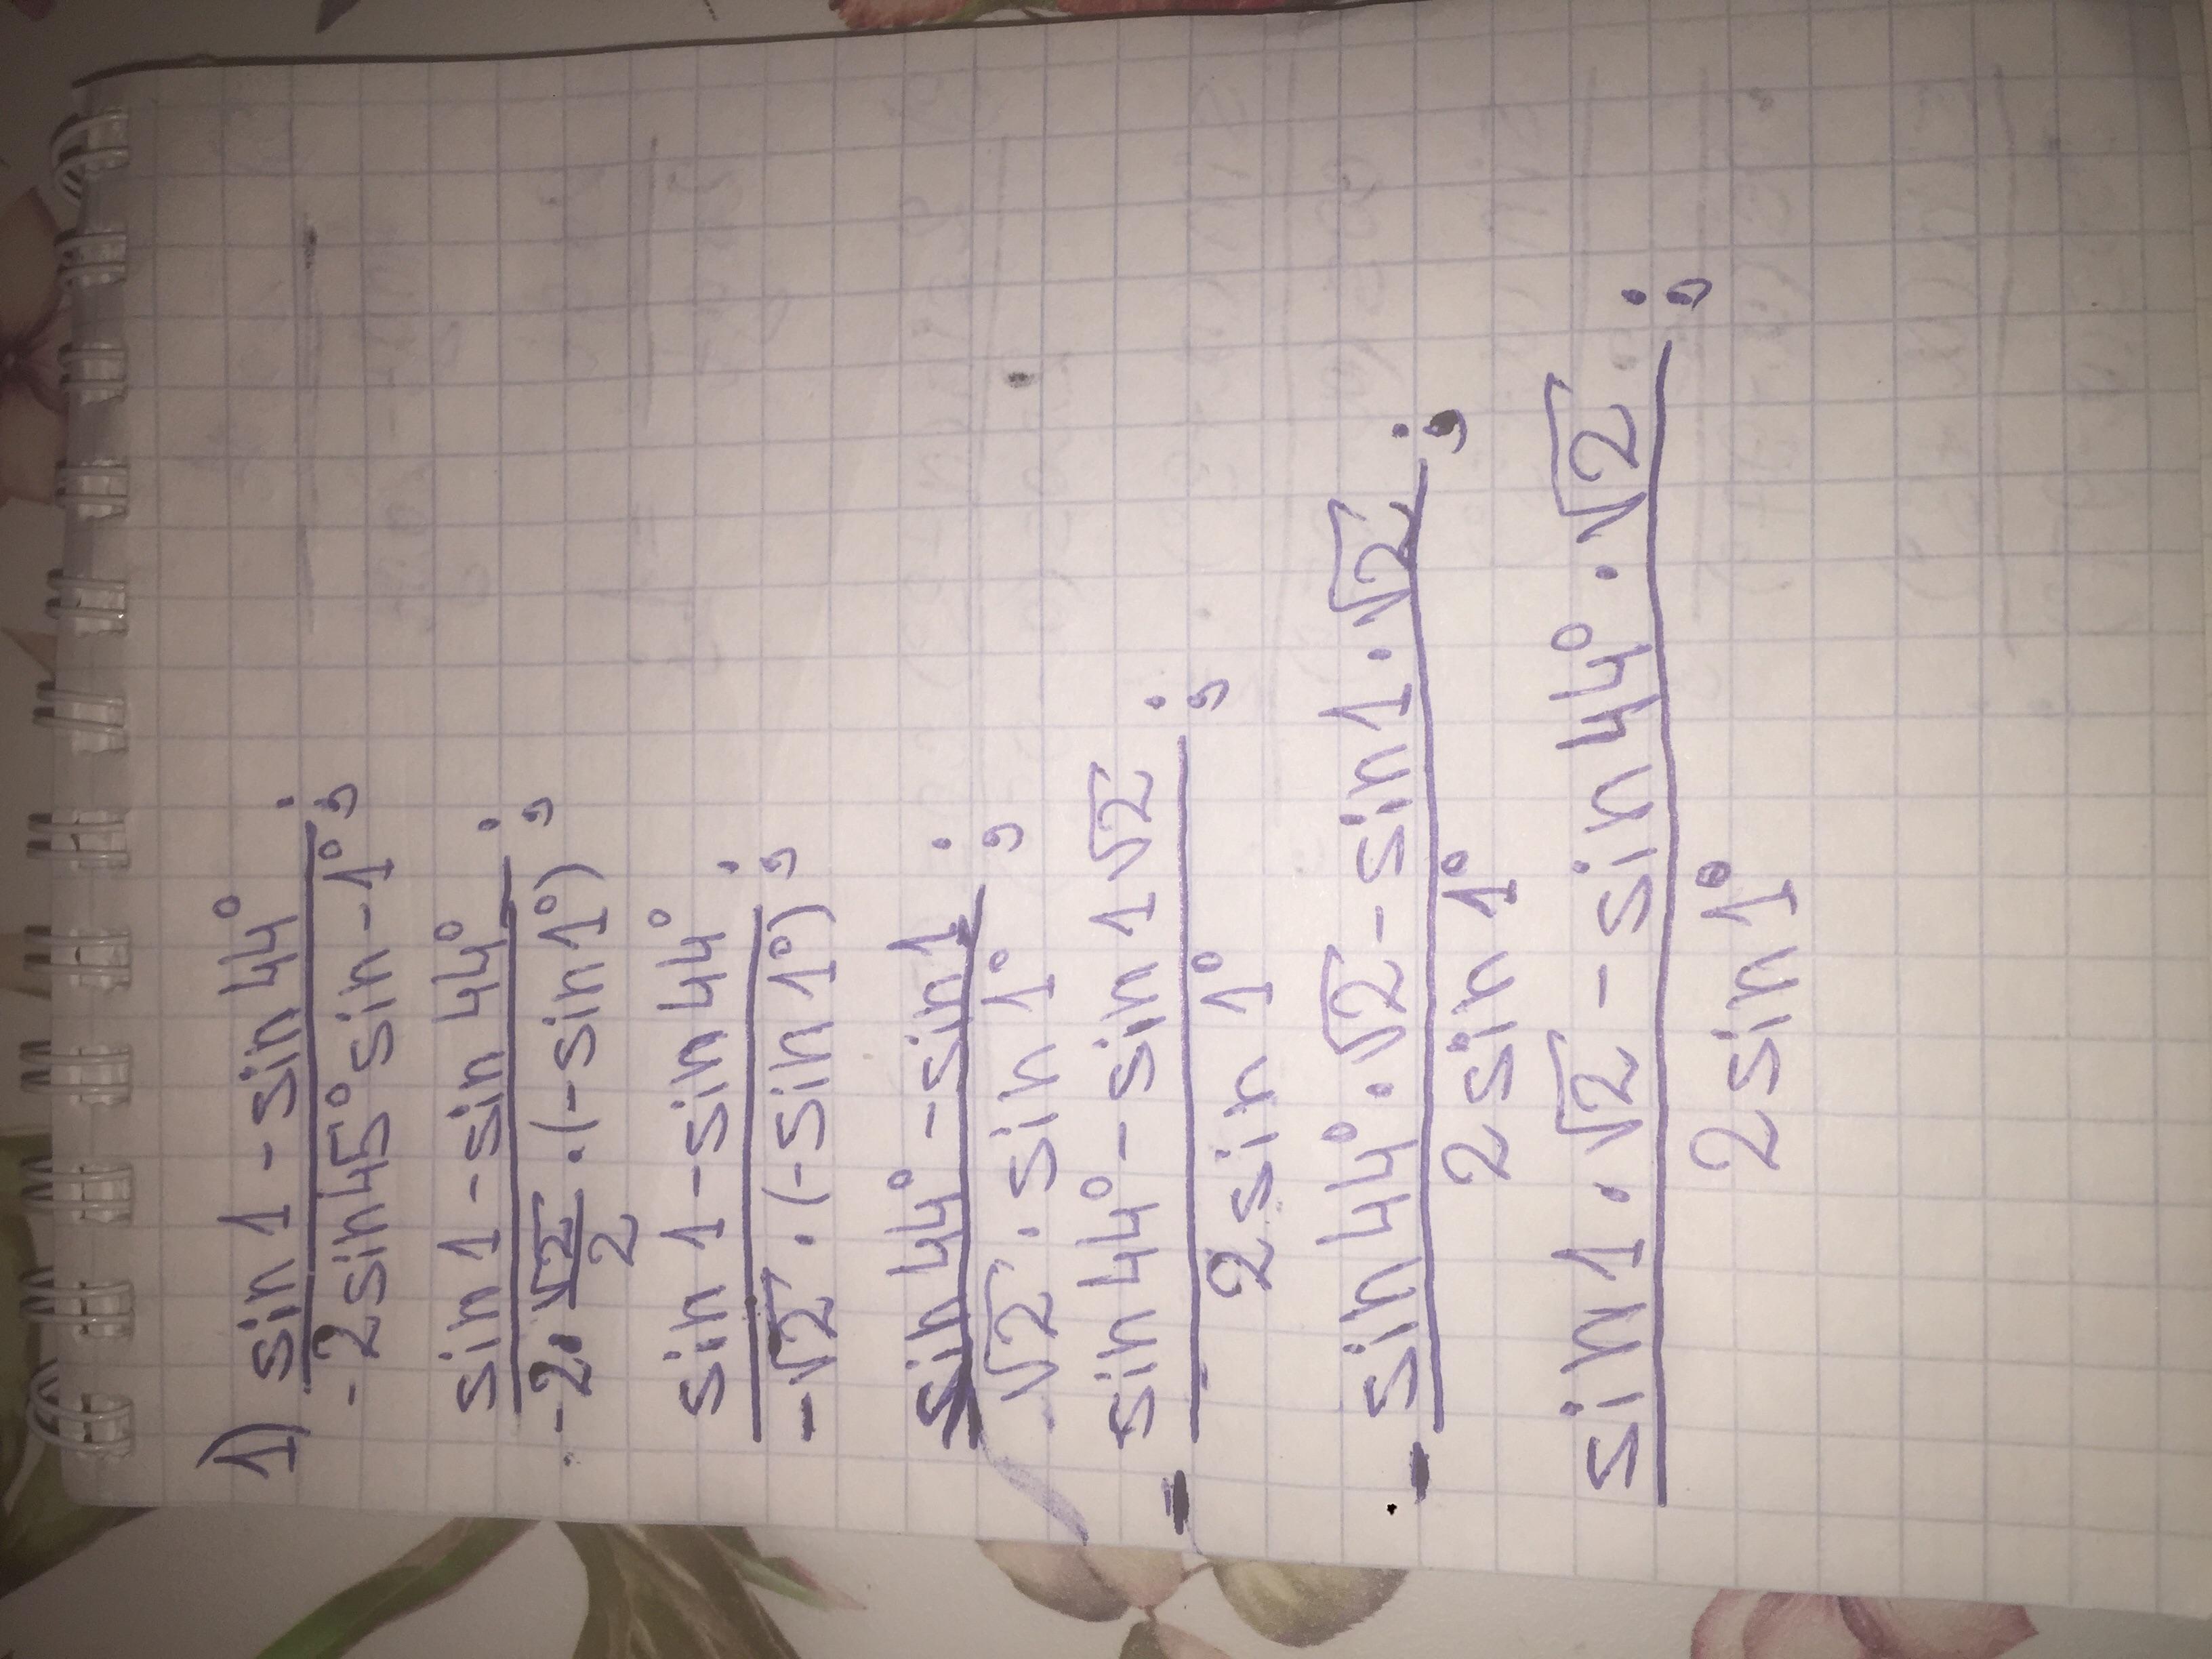 1) sin 1 - sin 44°
-2 sin 45° sin -1° ;
sin 1 - sin 44°
-2 · √2/2 · (-sin 1°) ;
sin 1 - sin 44°
-√2 · (-sin 1°) ;
sin 44° - sin 1
√2 · sin 1° ;
- sin 44° - sin 1 √2
2 sin 1° ;
- sin 44° · √2 - sin 1 · √2
2 sin 1° ;
sin 1 · √2 - sin 44° · √2
2 sin 1° ;